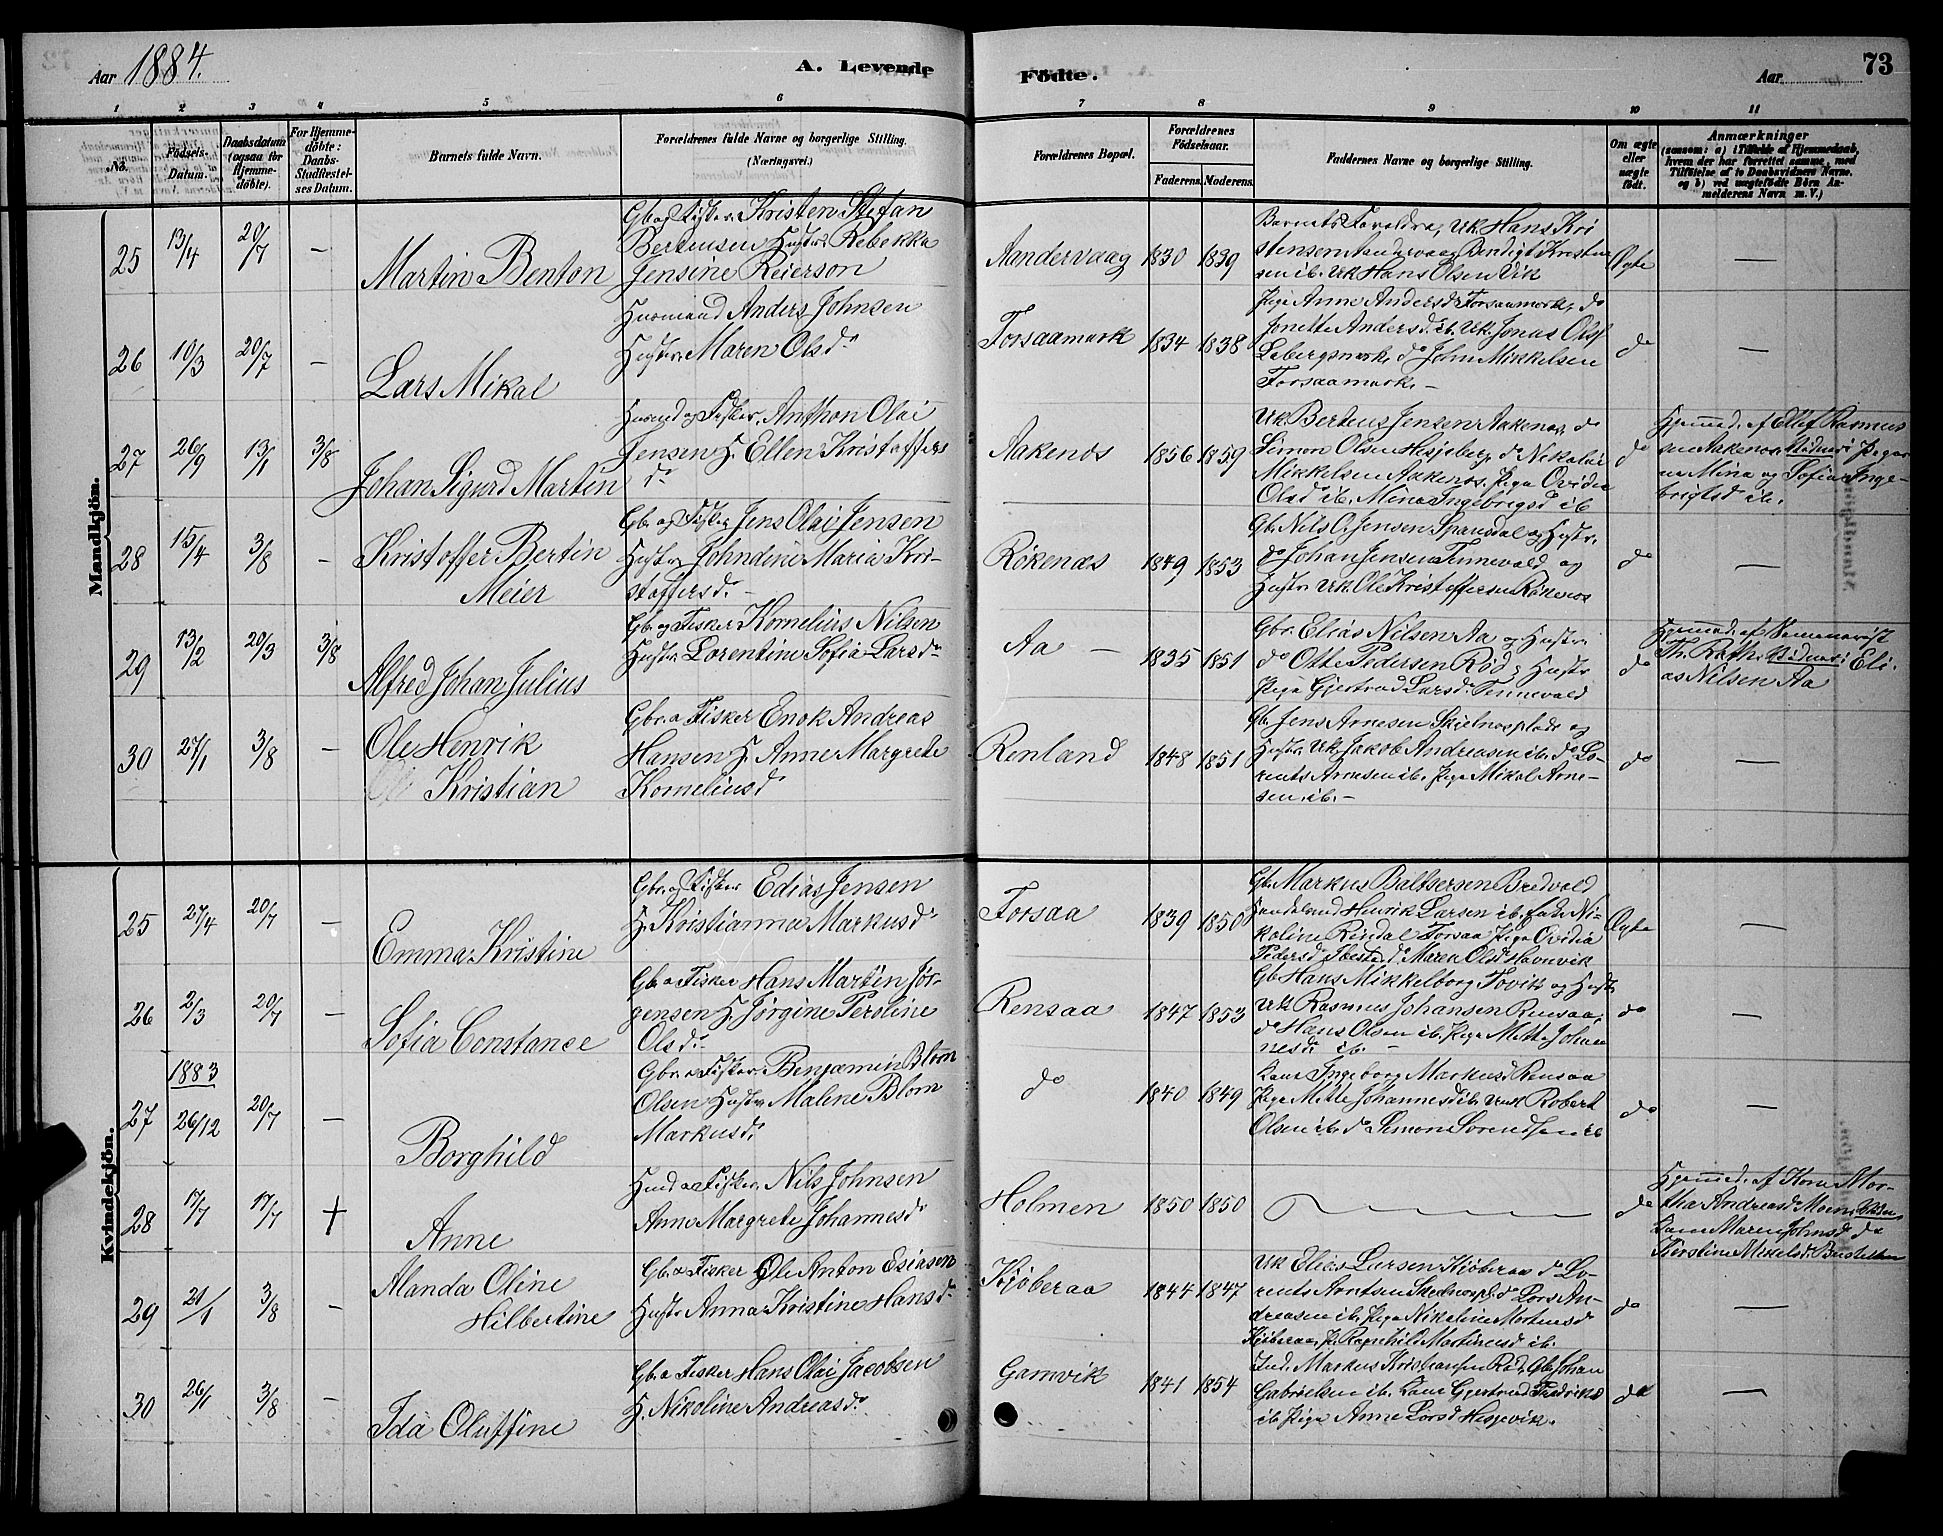 Aar 1884.
A. Levende
Födte.
Aar
73
1 2 3 4 5 6 7 8 9 10 11
No.
Födsels-Datum.
Daabsdatum (ogsaa for Hjemme-döbte).
For Hjemme-döbte: Daabs-Stadfæstel-ses Datum.
Barnets fulde Navn.
Forældrenes fulde Navne og borgerlige Stilling.
(Næringsvei.)
Forældrenes Bopæl.
Forældrenes Födselsaar.
Faderens. Moderens.
Faddernes Navne og borgerlige Stilling.
Om ægte eller uægte födt.
Anmærkninger
(saasom: a) i Tilfælde af Hjemmedaab, hvem der har forrettet samme, med Tilföielse af to Daabsvidners Navne, og b) ved uægtefödte Börn Anmelderens Navn m. V.)
Mandkjön.
25 13/4 20/7 — Martin Benton
Gb og Fisker Kristen Stefan
Bertensen Hustr. Rebekka
Jensine Reierson
Aandervaag 1830 1839
Barnets Forældre, Uk. Hans Kri
stensen Aandervaag Bendigt Kristen
sen ib. Uk Hans Olsen Vik
Ægte —
26 10/3 20/7 — Lars Mikal
Husmand Anders Johnsen
Hustr. Maren Olsdr
Forsaamark 1834 1838
Pige Anne Andersd. Forsaamark, do
Jonette Andersd. ib. Uk. Jonas Ols
Lebergsmark, do John Mikkelsen
Forsaamark. —
do —
27 26/9 13/1 3/8 Johan Sigurd Martin
Husmd og Fisker. Anthon Olai
Jensen H. Ellen Kristoffers
dr
Aakenes 1856 1859
Uk Berteus Jensen Aakenes, do
Simon Olsen Hesjeberg, do Nikolai
Mikkelsen Aakenes. Pige Ovidia
Olsd ib. Mina Ingebrigsd ib
do
Hjemmed. af Ellef Rasmus
sen Aakenes Vidner: Piger
ne Mina og Sofia Inge-
brigtsd ib.
28 15/4 3/8 — Kristoffer Bertin
Meier
Gb. og Fisker Jens Olai Jensen
Hustr. Johndine Maria Kri-
stoffersd. —
Rökenæs 1849 1853
Gb. Nils O. Jensen Spansdal og Hustr.
do Johan Jensen Tennevold og
Hustr. Uk. Ole Kristoffersen Rökenes
do —
29 13/2 20/3 3/8 Alfred Johan Julius
Gb. og Fisker Kornelius Nilsen
Hustr Lorentine Sofia Larsdr
Aa — 1835 1851
Gbr. Elias Nilsen Aa og Hustr.
do Otte Pedersen Röd, Hustr
Pige Gjertrud Larsd. Tennevold
do
Hjemmed. af
Th. Rath. Vidner: Eli.
as Nilsen Aa
30 27/1 3/8 — Ole Henrik
Kristian
Gbr. o Fisker Enok Andreas
Hansen H. Anne Margrete
Korneliusd
Renland 1848 1851
Gb. Jens Arnesen Skjelnesplads og
Hustr. Uk. Jakob Andreasen ib. do Lo-
rents Arnesen ib. Pige Mikal Arne-
sen. ib. —
do —
Kvindekjön.
25 27/4 20/7 — Emma Kristine
Gbr. og Fisker Edias Jensen
H. Kristianna Markusdr
Forsaa 1839 1850
Gb. Markus Baltsersen Bredvold
Handelsmd Henrik Larsen ib. Ni-
koline Rindal Forsaa Pige Ovidia
Pedersd. Ibestad, do Maren Olsd Havnvik
Ægte —
26 2/3 20/7 — Sofia Constance
Gb. o Fisker Hans Martin Jör-
gensen H. Jörgine Peroline
Olsdr
Rensaa 1847 1853
Gb Hans Mikkelborg Tovik og Hustr
Uk Rasmus Johansen Rensaa,
do Hans Olsen ib. Pige Mette Johan
nesdr ib. —
do —
27 1883 26/12 20/7 — Borghild
Gbr. o Fisker. Benjamin Blom
Olsen Hustr Maline Blom
Markusd.
do 1840 1849
Kone Ingeborg Markusd Rensaa
Pige Mette Johannesd ib. Robert
Olsen ib. do Simon Sorendsen ib
do —
28 17/7 17/7 + Anne
Husmd o Fisker. Nils Johnsen
Anne Margrete Johannesdr
Holmen 1850 1850
do
Hjemmed. af Kone Mar-
tha Andreasd. Moen.
Kone Maren Johnsd do
Kerstine Mikelsd.
29 21/1 3/8 — Manda Oline
Hilbertine
Gb. o Fisker Ole Anton Esiasen
Hustr Anna Kristine Hansdr
Kjöberaa 1844 1847
Uk Elias Larsen Kjöberaa do Lo-
rents Arntsen do Lars An-
dreasen ib. Pige Nikoline Mortensd
Kjöberaa, P. Ragnhild Martinusd ib.
do —
30 26/1 3/8 — Ida Oluffine
Gb. o Fisker Hans Olai Jacobsen
H. Nikoline Andreasdr
Gamvik 1841 1854
Ind. Markus Kristiansen Röd, Gb. Johan
Gabrielsen ib. Kone Gjertrud Fredriksd
ib Pige Anne Larsd Hesjevik.
do —